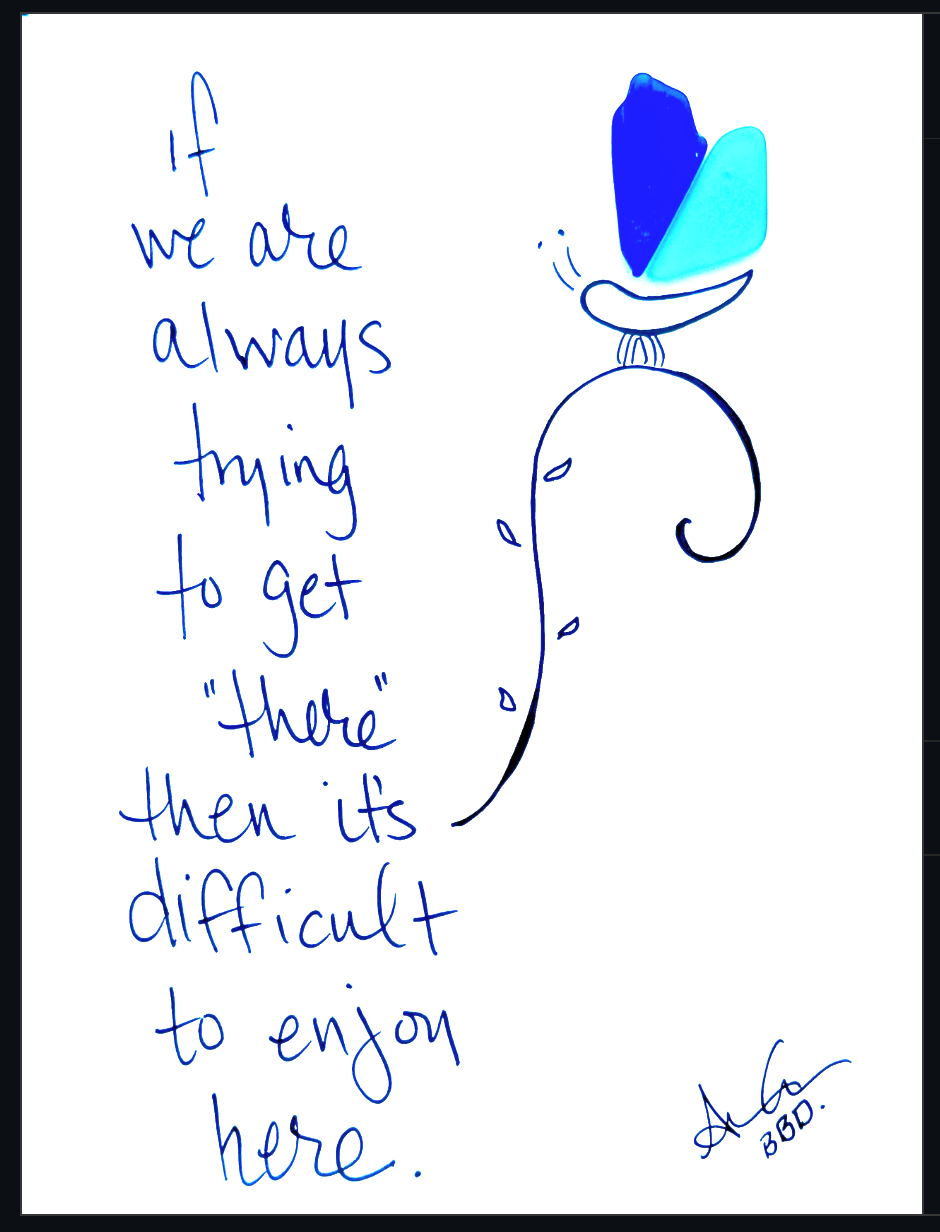 if
we are
always
trying
to get
"there"
then it's
difficult
to enjoy
here.
BBD.